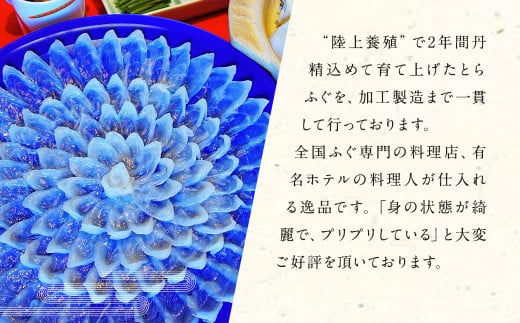 “陸上養殖”で2年間丹
精込めて育て上げたとら
ふぐを、加工製造まで一貫
して行っております。
全国ふぐ専門の料理店、有
名ホテルの料理人が仕入れ
る逸品です。「身の状態が綺
麗で、プリプリしている」と大変
ご好評を頂いております。